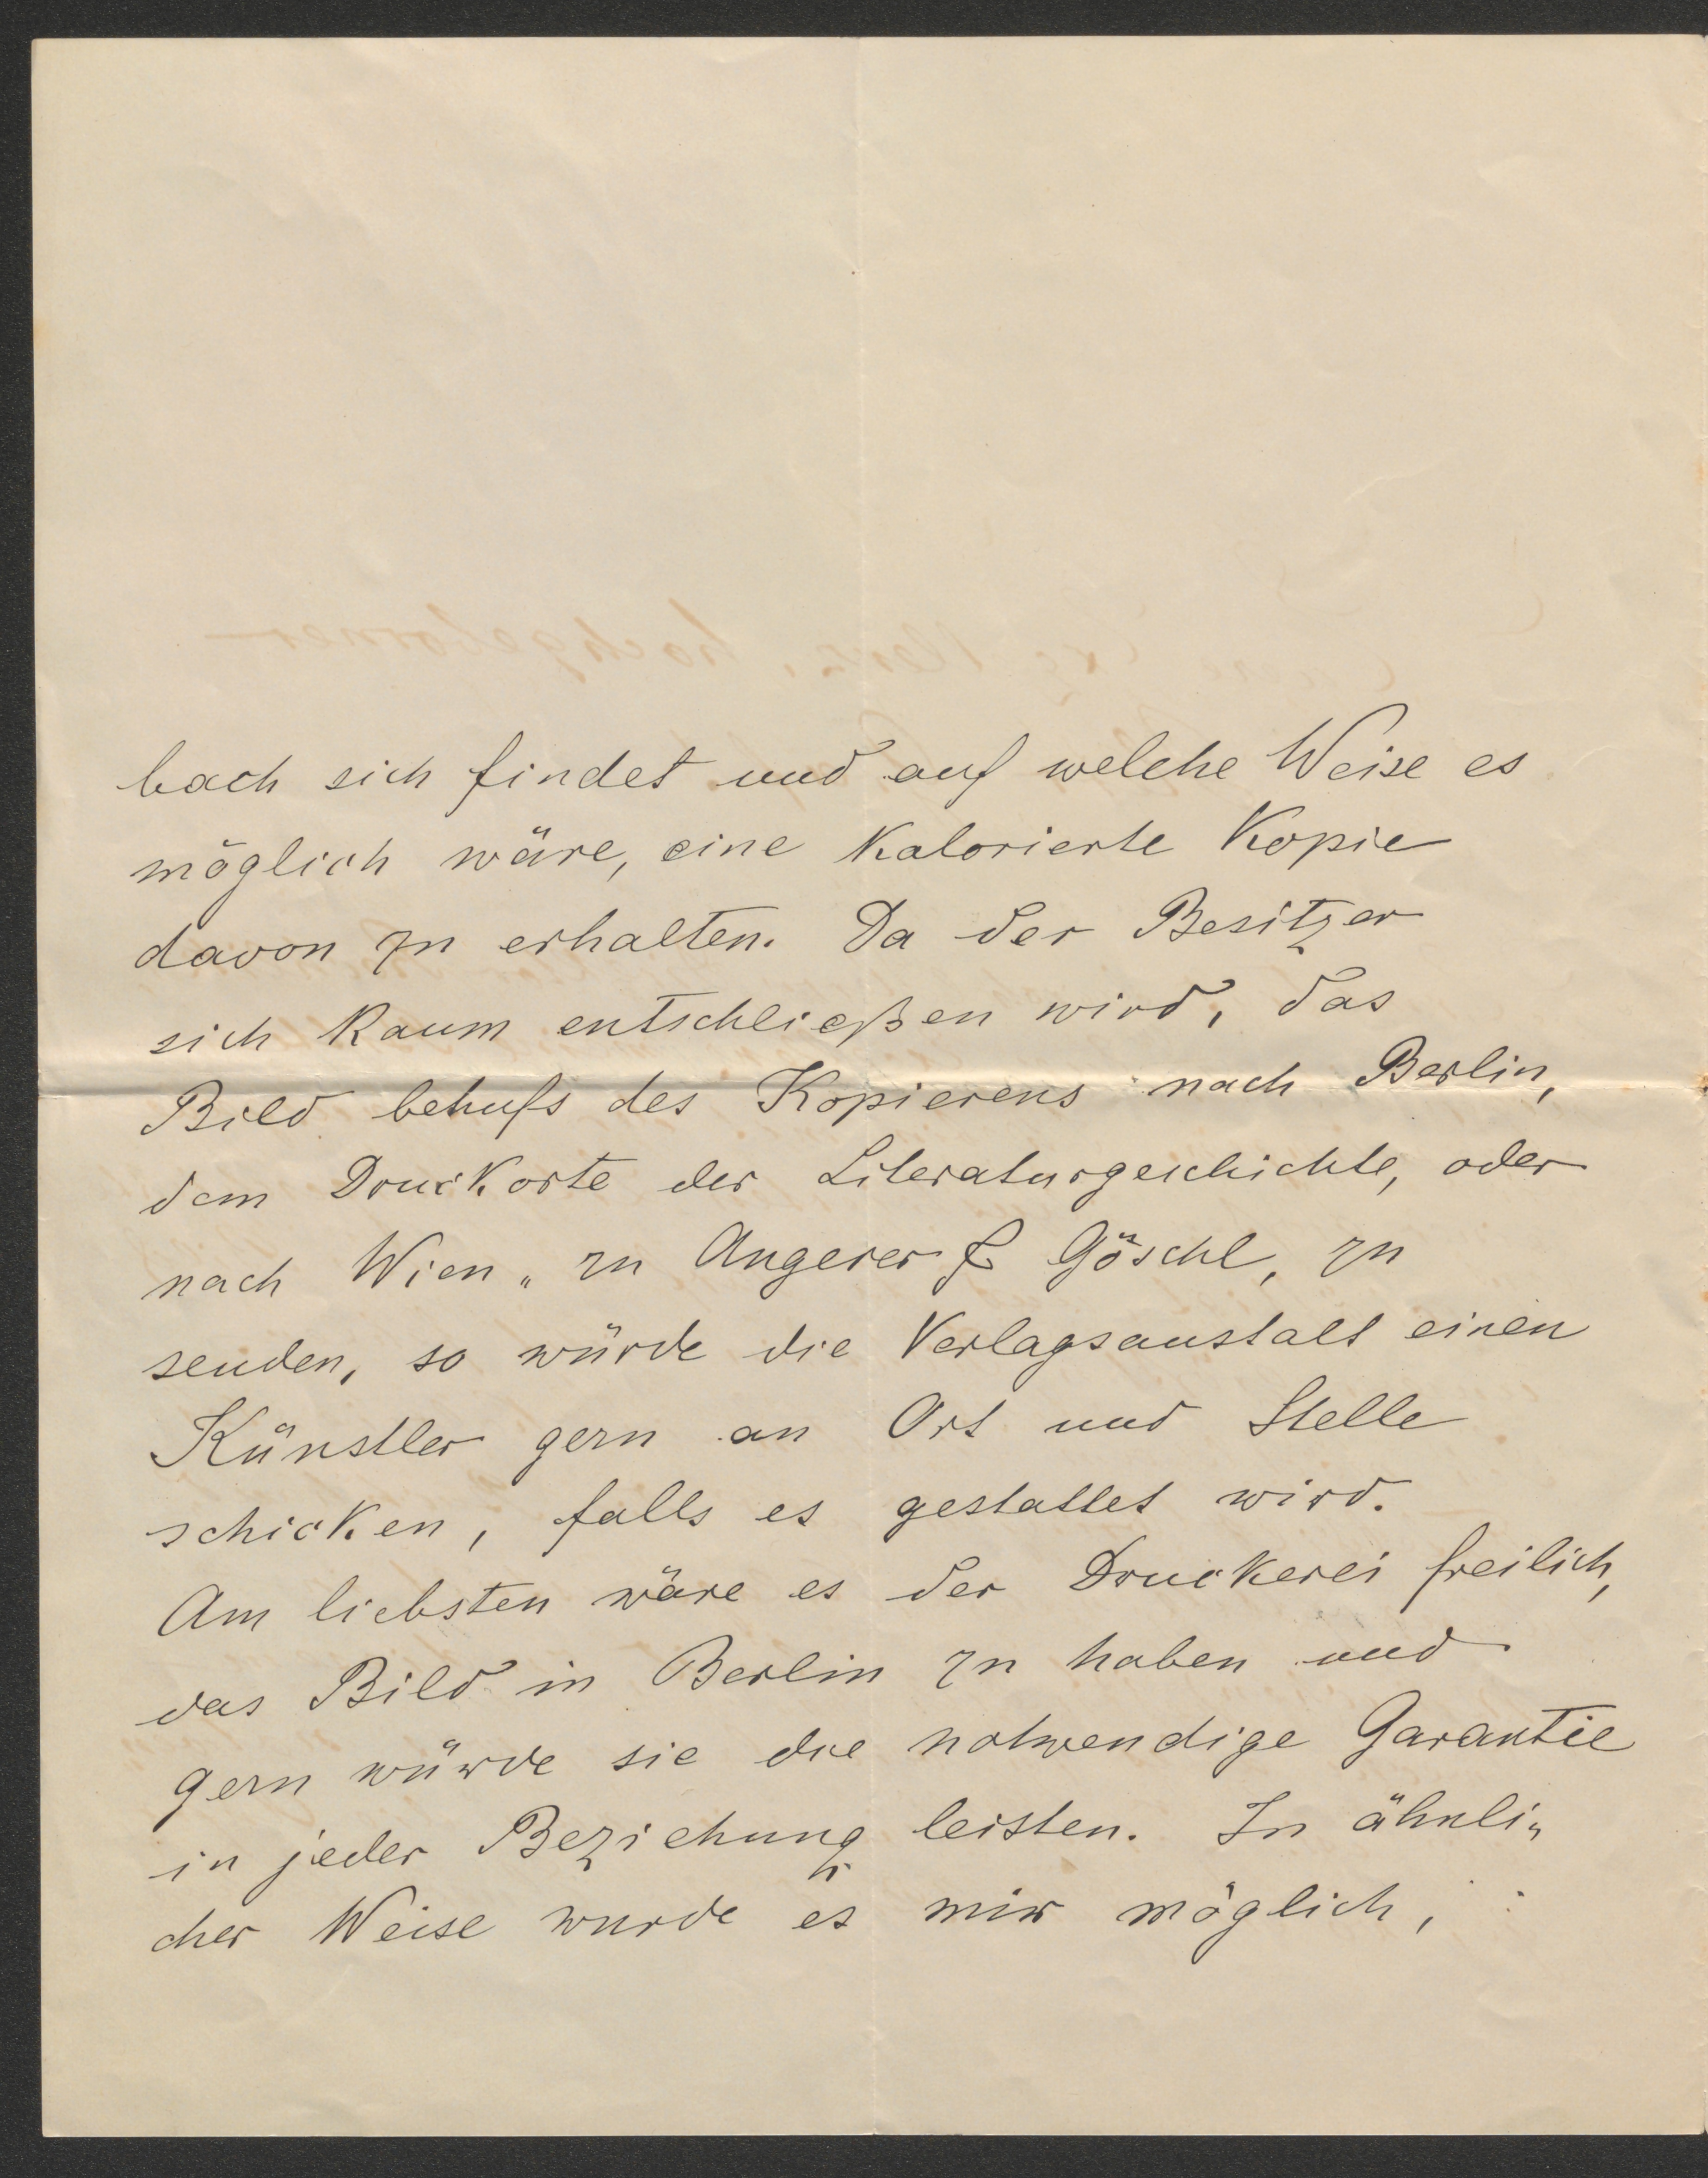 bach sich findet und auf welche Weise es
möglich wäre, eine kalorierte Kopie
davon zu erhalten. Da der Besitzer
sich kaum entschließen wird, das
Bild behufs des Kopierens nach Berlin,
dem Druckorte der Literaturgeschichte, oder
nach Wien, zu Angerer & Göschl, zu
senden, so würde die Verlagsanstalt einen
Künstler gern an Ort und Stelle
schicken, falls es gestattet wird.
Am liebsten wäre es der Druckerei freilich,
das Bild in Berlin zu haben und
gern würde sie die notwendige Garantie
in jeder Beziehung leisten. In ähnli„
cher Weise wurde es mir möglich,